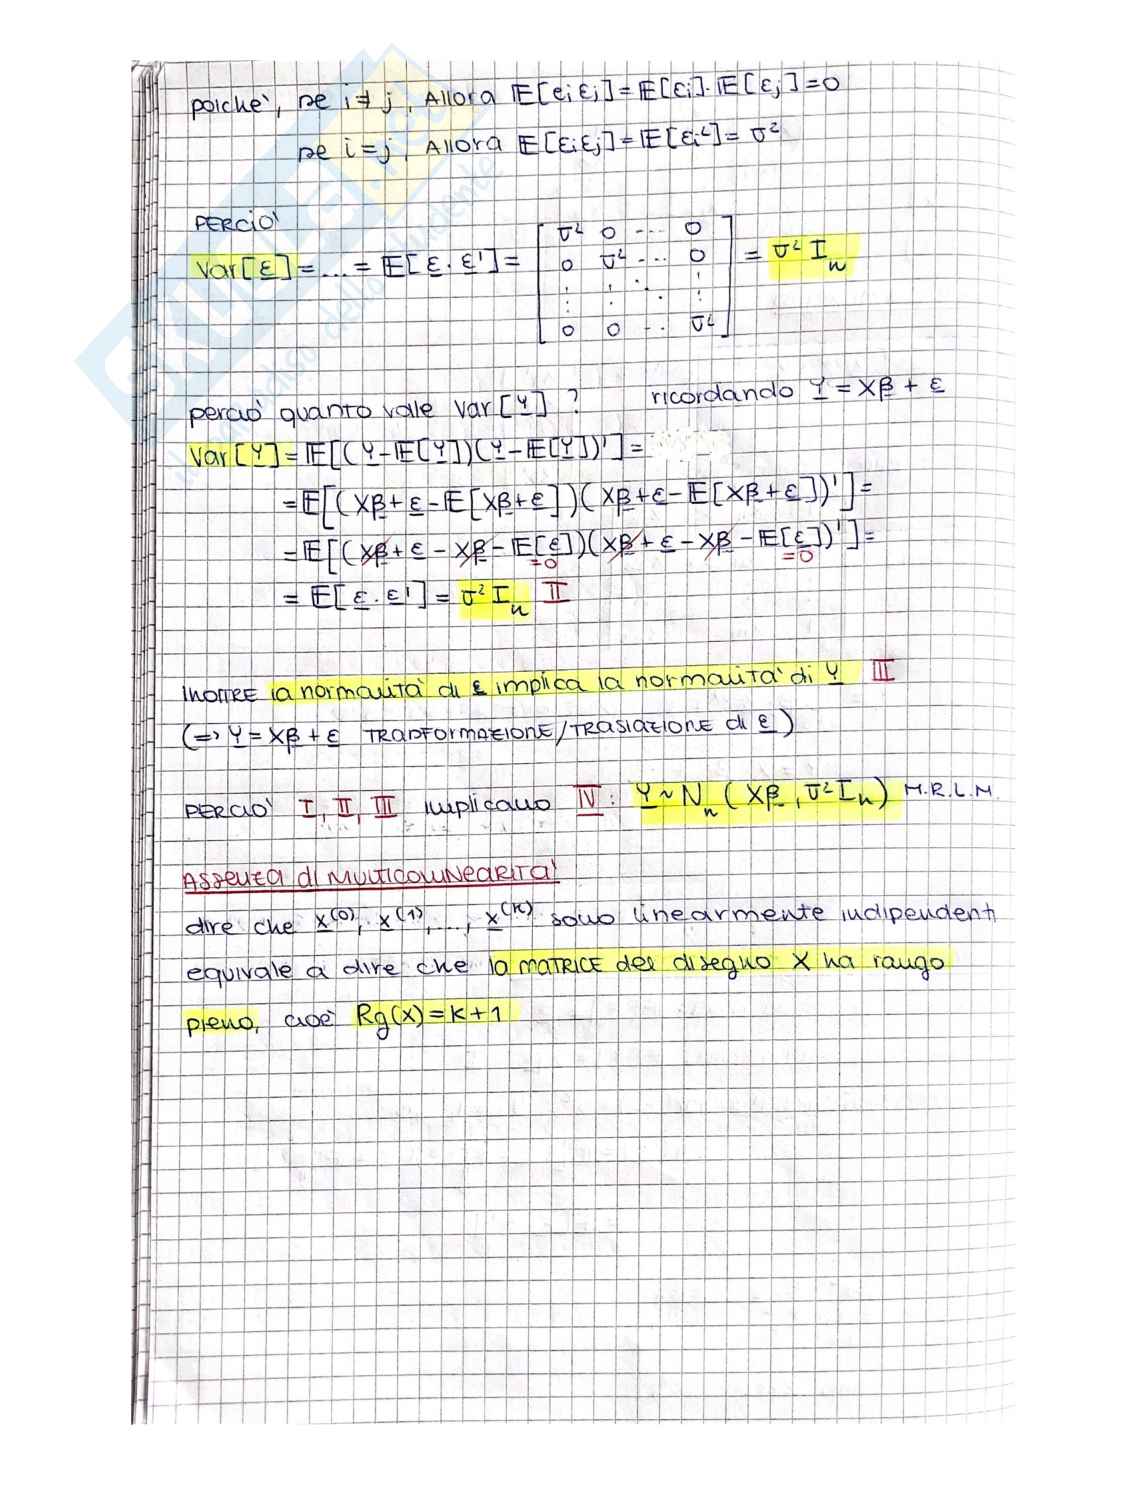 poiche', se i ≠ j, Allora E[εiεj] = E[εi]·E[εj] = 0
se i = j, Allora E[εiεj] = E[εi²] = σ²
PERCIO'
Var[ε] = ... = E[ε·ε'] = [σ² 0 ... 0 ; 0 σ² ... 0 ; ⋮ ⋮ ⋱ ⋮ ; 0 0 ... σ²] = σ² In
perciò quanto vale Var[Y] ? ricordando Y = Xβ + ε
Var[Y] = E[(Y-E[Y])(Y-E[Y])'] =
= E[(Xβ+ε-E[Xβ+ε])(Xβ+ε-E[Xβ+ε])'] =
= E[(Xβ+ε-Xβ-E[ε])(Xβ+ε-Xβ-E[ε])'] =
=0 =0
= E[ε·ε'] = σ² In II
INOLTRE la normalità di ε implica la normalità di Y III
(=> Y = Xβ + ε TRASFORMAZIONE/TRASLAZIONE di ε)
PERCIO' I, II, III implicano IV : Y ~ Nn (Xβ, σ²In) M.R.L.M.
ASSENZA di MULTICOLLINEARITA'
dire che x(0), x(1), ..., x(k) sono linearmente indipendenti
equivale a dire che la MATRICE del disegno X ha rango
pieno, cioè Rg(X) = k+1